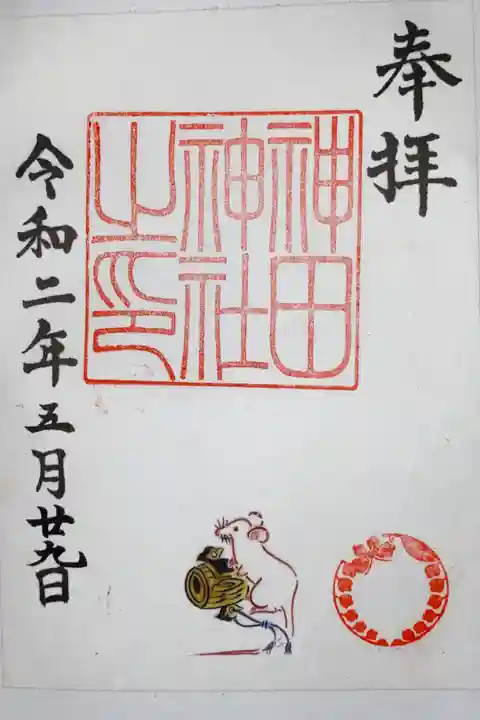 奉拝
神田
神社
之印
令和二年五月廿九日